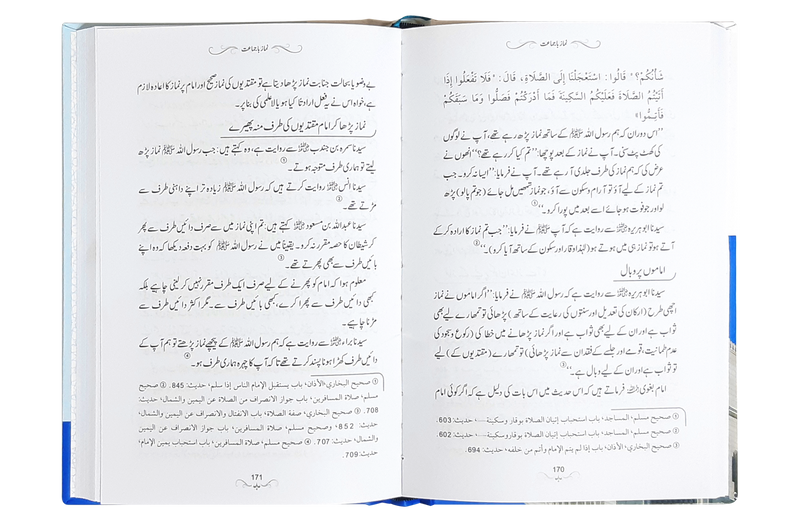 نماز باجماعت
شَأْنُكُمْ؟" قَالُوا: اسْتَعْجَلْنَا إِلَى الصَّلَاةِ، قَالَ: "فَلَا تَفْعَلُوا إِذَا
أَتَيْتُمُ الصَّلَاةَ فَعَلَيْكُمُ السَّكِينَةَ فَمَا أَدْرَكْتُمْ فَصَلُّوا وَمَا سَبَقَكُمْ
فَأَتِمُّوا»
"اس دوران کہ ہم رسول اللہ ﷺ کے ساتھ نماز پڑھ رہے تھے، آپ نے لوگوں
کی کھٹ پٹ سنی۔ آپ نے نماز کے بعد پوچھا: "تم کیا کر رہے تھے؟" انھوں نے
عرض کی کہ ہم نماز کی طرف جلدی آ رہے تھے۔ آپ نے فرمایا: "ایسا نہ کرو۔ جب
تم نماز کے لیے آؤ تو آرام و سکون سے آؤ، جو نماز تمھیں مل جائے (جو تم پالو) پڑھ
لو اور جو فوت ہو جائے اسے بعد میں پورا کرو۔"①
سیدنا ابو ہریرہ ؓ سے روایت ہے کہ آپ ﷺ نے فرمایا: "جب تم نماز کا ارادہ کر کے
آتے ہو تو نماز ہی میں ہوتے ہو (لہٰذا وقار اور سکون کے ساتھ آیا کرو)۔"②
اماموں پر وبال
سیدنا ابو ہریرہ ؓ سے روایت ہے کہ رسول اللہ ﷺ نے فرمایا: "اگر اماموں نے نماز
اچھی طرح (ارکان کی تعدیل اور سنتوں کی رعایت کے ساتھ) پڑھائی تو تمھارے لیے بھی
ثواب ہے اور ان کے لیے بھی ثواب ہے اور اگر نماز پڑھانے میں خطا کی (رکوع و سجود کی
عدم طمانیت، قومے اور جلسے کے فقدان سے نماز پڑھائی) تو تمھارے (مقتدیوں کے) لیے
تو ثواب ہے اور ان کے لیے وبال ہے۔"③
امام بغوی ؒ فرماتے ہیں کہ اس حدیث میں اس بات کی دلیل ہے کہ اگر کوئی امام
① صحيح مسلم، المساجد، باب استحباب إتيان الصلاة بوقار وسكينة ....، حديث: 603.
② صحيح مسلم، المساجد، باب استحباب إتيان الصلاة بوقار وسكينة ....، حديث: 602.
③ صحيح البخاري، الأذان، باب إذا لم يتم الإمام وأتم من خلفه، حديث: 694.
170
نماز باجماعت
بے وضو یا بحالت جنابت نماز پڑھا دیتا ہے تو مقتدیوں کی نماز صحیح اور امام پر نماز کا اعادہ لازم
ہے، خواہ اس نے یہ فعل ارادتاً کیا ہو یا لاعلمی کی بنا پر۔
نماز پڑھا کر امام مقتدیوں کی طرف منہ پھیرے
سیدنا سمرہ بن جندب ؓ سے روایت ہے، وہ کہتے ہیں: جب رسول اللہ ﷺ نماز پڑھ
لیتے تو ہماری طرف متوجہ ہوتے۔①
سیدنا انس ؓ روایت کرتے ہیں کہ رسول اللہ ﷺ زیادہ تر اپنے داہنی طرف سے
مڑتے تھے۔②
سیدنا عبداللہ بن مسعود ؓ کہتے ہیں: تم اپنی نماز میں سے صرف دائیں طرف سے پھر
کر شیطان کا حصہ مقرر نہ کرو۔ یقیناً میں نے رسول اللہ ﷺ کو بہت دفعہ دیکھا کہ وہ اپنے
بائیں طرف سے بھی پھرتے تھے۔③
معلوم ہوا کہ امام کو پھرنے کے لیے صرف ایک طرف مقرر نہیں کر لینی چاہیے بلکہ
کبھی دائیں طرف سے پھرا کرے، کبھی بائیں طرف سے۔ مگر اکثر دائیں طرف سے
مڑنا چاہیے۔
سیدنا براء ؓ سے روایت ہے کہ ہم رسول اللہ ﷺ کے پیچھے نماز پڑھتے تو ہم آپ کے
دائیں طرف کھڑا ہونا پسند کرتے تھے تاکہ آپ کا چہرہ ہماری طرف ہو۔④
① صحيح البخاري، الأذان، باب يستقبل الإمام الناس إذا سلم، حديث: 845. ② صحيح
مسلم، صلاة المسافرين، باب جواز الانصراف من الصلاة عن اليمين والشمال، حديث:
708. ③ صحيح البخاري، صفة الصلاة، باب الانفتال والانصراف عن اليمين والشمال،
حديث: 852، وصحيح مسلم، صلاة المسافرين، باب جواز الانصراف عن اليمين
والشمال، حديث: 707. ④ صحيح مسلم، صلاة المسافرين، باب استحباب يمين الإمام،
حديث: 709.
171